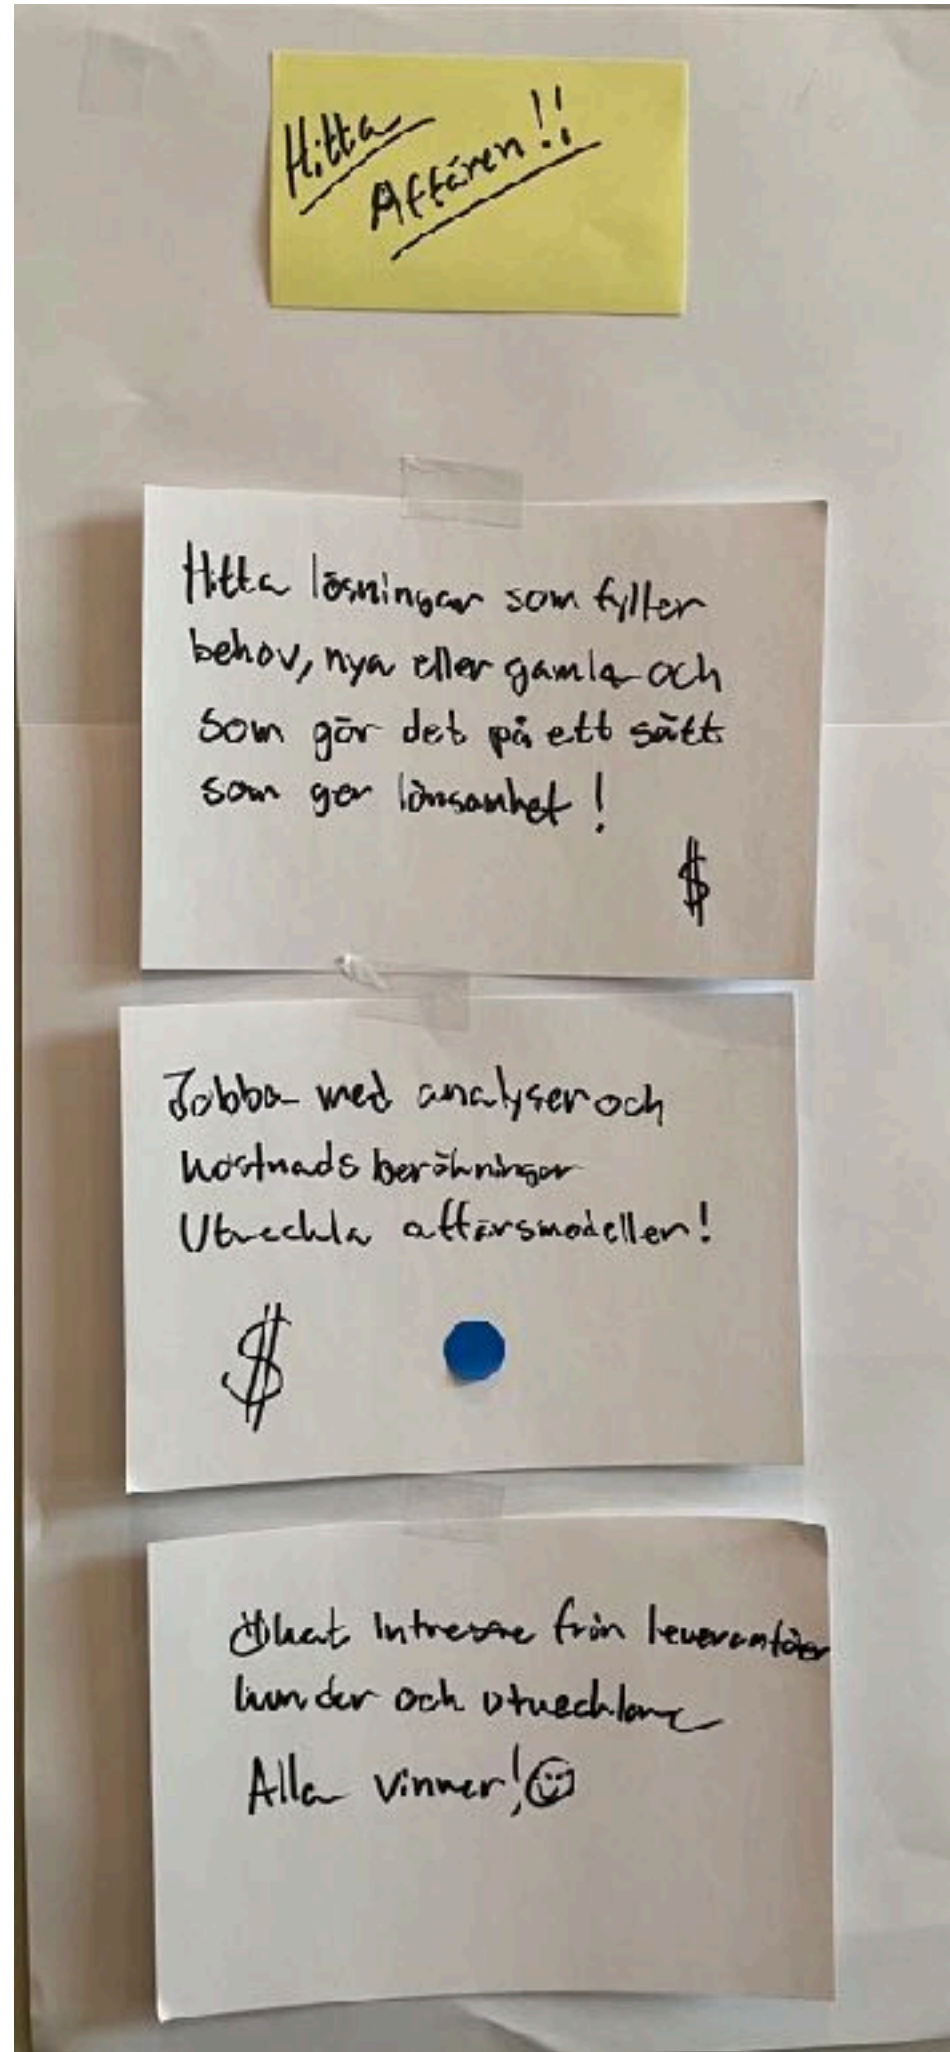 Hitta
Affären!!
Hitta lösningar som fyller
behov, nya eller gamla och
som gör det på ett sätt
som ger lönsamhet!
$
Jobba med analyser och
kostnads beräkningar
Utveckla affärsmodeller!
$
Ökat intresse från leverantörer
kunder och utvecklare
Alla vinner!